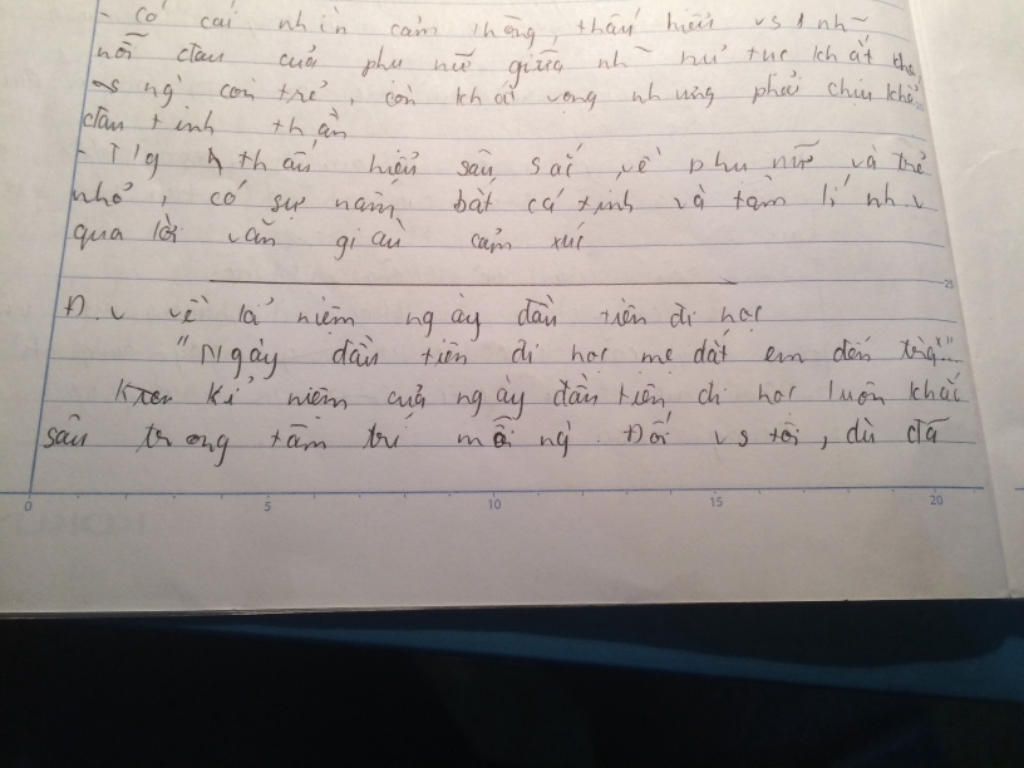 - có cái nhìn cảm thông, thấu hiểu vs
nỗi đau của phụ nữ giữa hủ tục khắt
còn trẻ, còn khát vọng nhưng phải chịu khổ
đau tinh thần
- T/g thấu hiểu sâu sắc về phụ nữ và trẻ
nhỏ, có sự nắm bắt cá tính và tâm lí nh.v
qua lời văn giàu cảm xúc
Đ.v về kỉ niệm ngày đầu tiên đi học
"Ngày đầu tiên đi học mẹ dắt em đến
Kỉ niệm của ngày đầu tiên đi học luôn khắc
sâu trong tâm trí mỗi ng`. Đối vs tôi, dù đã
0 5 10 15 20
25